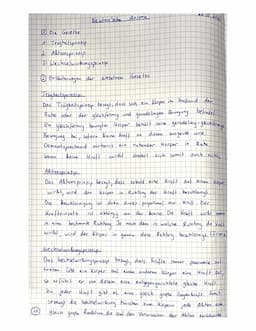 Newton'sche Axiome
① Die Gesetze
1. Trägheitsprinzip
2. Aktionsprinzip
3. Wechselwirkungsprinzip
② Erläuterungen der einzelnen Gesetze
Trägheitsprinzip:
Das Trägheitsprinzip besagt, dass sich ein Körper im Zustand der
Ruhe oder der gleichförmig und geradlinigen Bewegung befindet.
Ein gleichförmig bewegter Körper behält seine geradlinig-gleichförmige
Bewegung bei, sofern keine Kraft an diesen ausgeübt wird.
Dementsprechend verharrt ein ruhender Körper in Ruhe,
wenn keine Kraft wirkt, ändert sich somit auch nichts.
Aktionsprinzip:
Das Aktionsprinzip besagt, dass sobald eine Kraft auf einen Körper
wirkt, wird der Körper in Richtung der Kraft beschleunigt.
Die Beschleunigung ist dabei direkt proportional zur Kraft. Der
Krafteinsatz ist abhängig von der Masse. Die Kraft wirkt immer
in eine bestimmte Richtung. Je nach dem in welche Richtung die Kraft
wirkt, wird der Körper in genau diese Richtung beschleunigt.
Wechselwirkungsprinzip:
Das Wechselwirkungsprinzip besagt, dass Kräfte immer paarweise auf-
treten. Übt ein Körper auf einen anderen Körper eine Kraft aus,
so erfährt er von diesem eine entgegengerichtete gleiche Kraft.
Zu jeder Kraft gibt es eine gleich große Gegenkraft.
erzeugt die Wechselwirkung zwischen zwei Körpern jede Aktion eine
gleich große Reaktion, die auf den Verursacher der Aktion zurückwirkt.